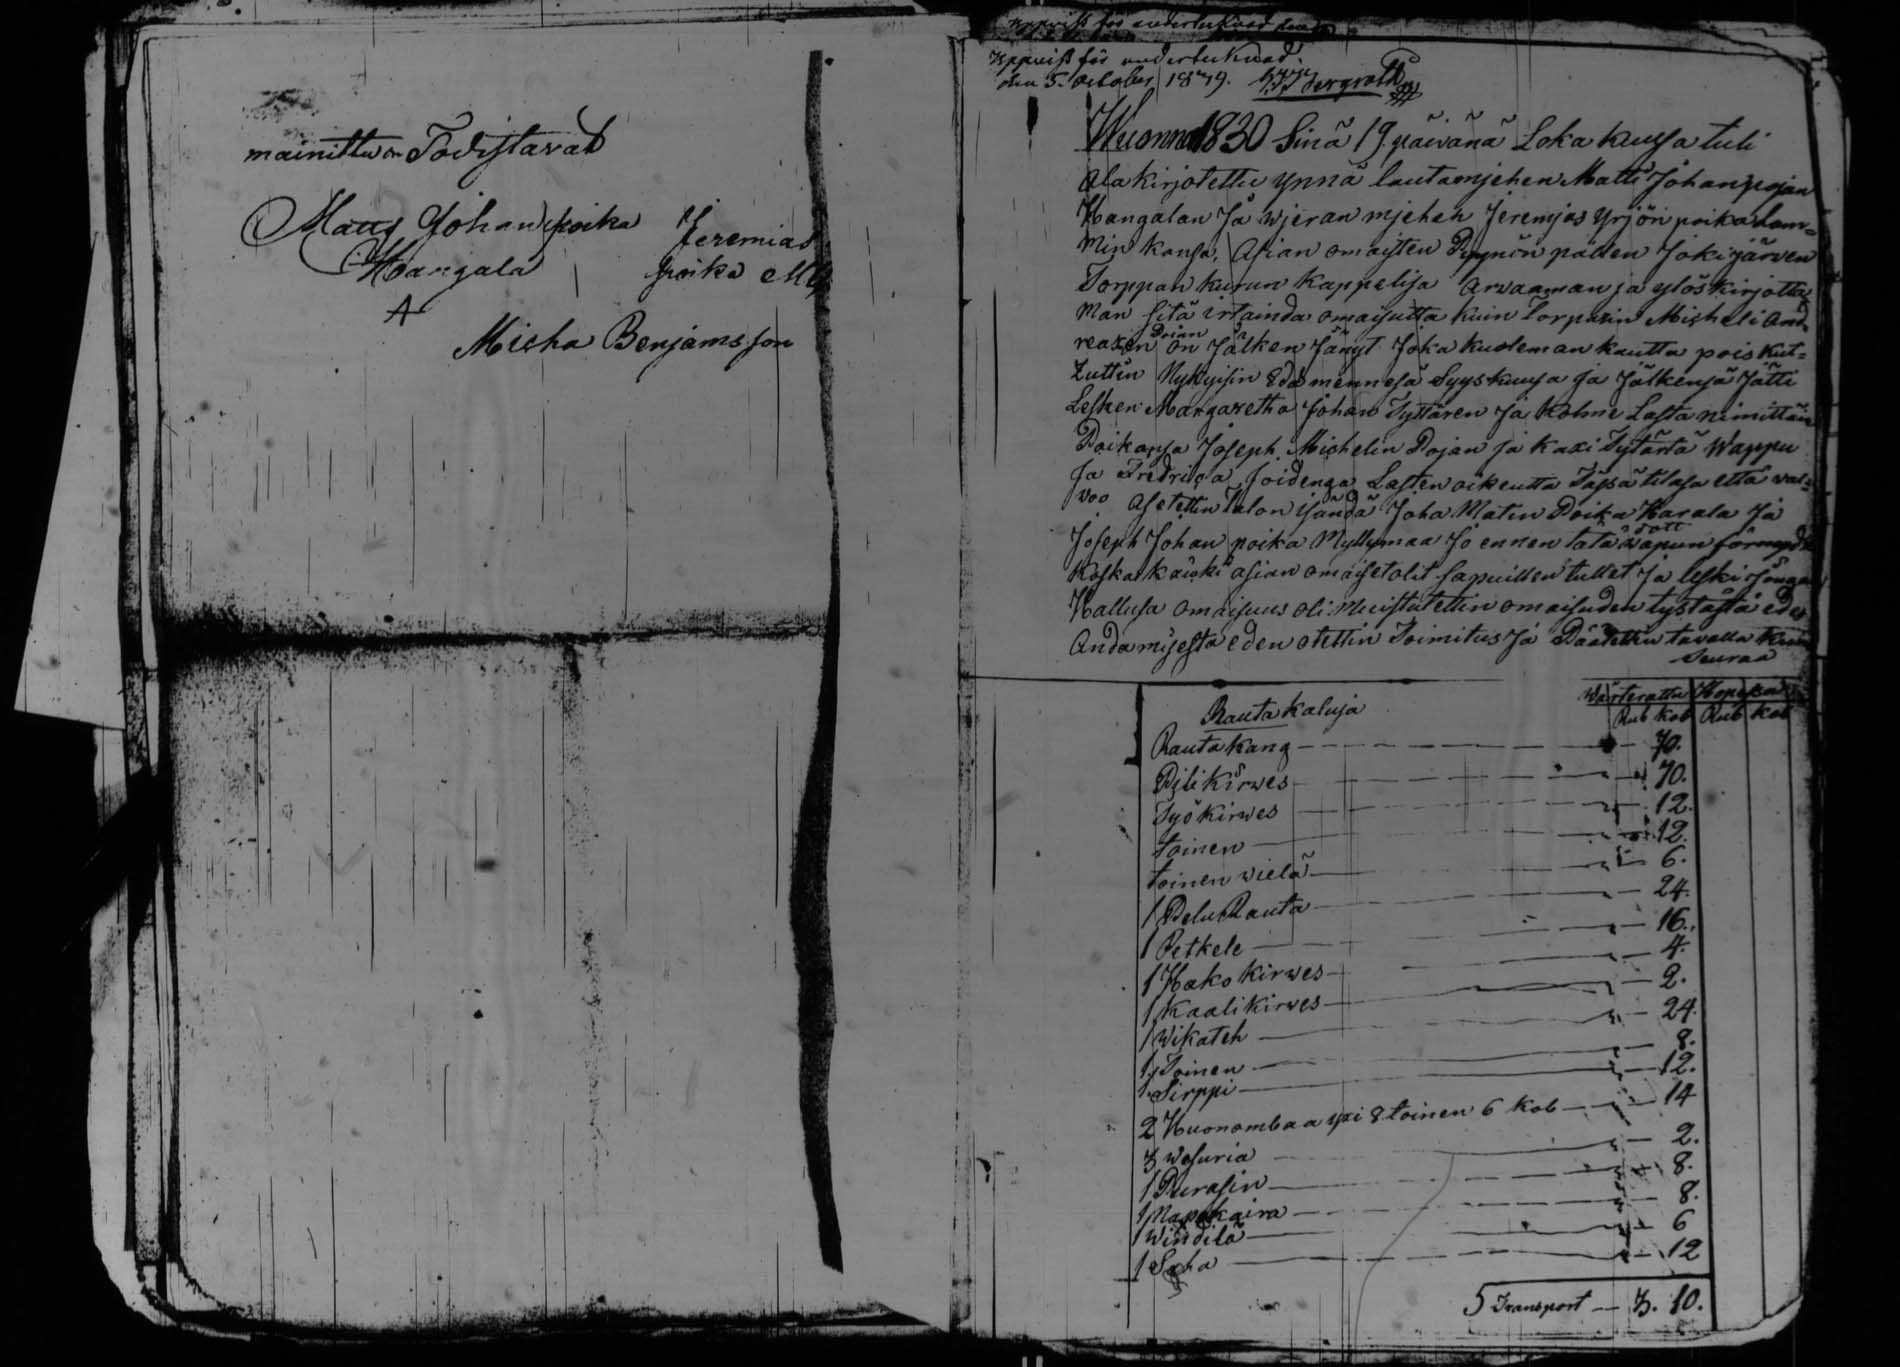 mainittu on Todistavat
Matts Johan poika Jeremias
Hangala poika
Micha Benjamsson
Uppvist för undertecknad
den 5. october 1849.
Wuonna 1830 Sinä 19. päivänä Loka kuusa tuli
Ala kirjotettu ynnä lautamjehen Matti Johan pojan
Hangalan Ja wjeran mjehen Jeremjas Yrjön poika Lam=
min kansa, Asian omaisten Pyynön pälten Jokijärven
Torppan kurun Kappelisa Arvaaman ja ylöskirjotta
man sitä irtainda omaisutta kuin Torparin Micheli And=
reaxen Poian on Jälken Jänyt Joka kuoleman kautta pois kut=
zuttin Nykyisin Edes mennesä Syyskuusa ja Jälkensä Jätti
Lesken Margaretha Johan Tyttären Ja kolme Lasta nimittäin
Poikansa Joseph Michelin Pojan ja kaxi Tytärtä Wappu
Ja Fredrica Joidenga Lasten oikeutta Täsä tilasa että val=
voo Asetettin Talon isändä Joha Matin Poika Karala Ja
Joseph Johan poika Myllymaa Jo ennen tätä
Koska kaicki asian omaiset olit sapuillen tullet Ja leski Jonga
Hallusa omaisuus oli Muistutettin omaisuden tystästä edes
Andamisesta eden otettin Toimitus Ja Päätettin tavalla kuin
Seuraa
Rauta kaluja Wärterattu Hopiasa
Rub kob Rub kob
Rauta kang 70.
Pilikirwes 70.
Työkirwes 12.
toinen 12.
toinen wielä 6.
1 Pelu Rauta 24.
1 Petkele 16.
1 Hako kirwes 4.
1 kaalikirwes 2.
1 Wikateh 24.
1. Toinen 8.
1. Sirppi 12.
2 Huonombaa yxi 8 toinen 6 kob 14
3 wesuria 2.
1 Purasin 8.
1 Napakaira 8.
1 Windilä 6
1 Saha 12
Transport 3. 10.